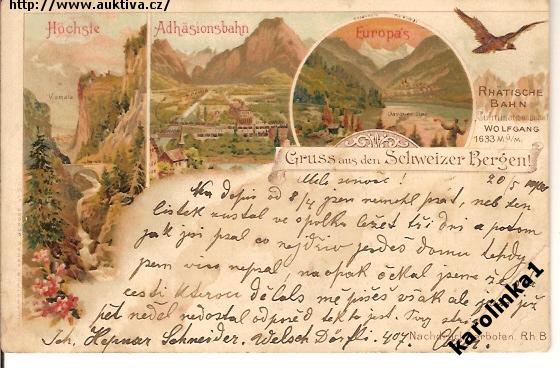 http://www.auktiva.cz
Höchste Adhäsionsbahn Europa's
Viamala
RHATISCHE
BAHN
WOLFGANG
1633 M.ü/M.
Gruss aus den Schweizer Bergen!
Milý synovc! 20/5
Na dopis od 8/4 jsem nemohl psát, neb ten
lístek zustal ve spolku ležet tři dni a potom
jak jsi psal co nejdřiv jedeš domu tehdy
jsem více nepsal, naopak očkal jsem že
cesti kterou dělals mě píšeš však ale již
pět neděl nedostal odpověd tek to jest. Tvy
Joh. Hepnar Schneider. Welsch Dörfli. 407.
Nachdruck verboten. Rh. B.
karolinka1